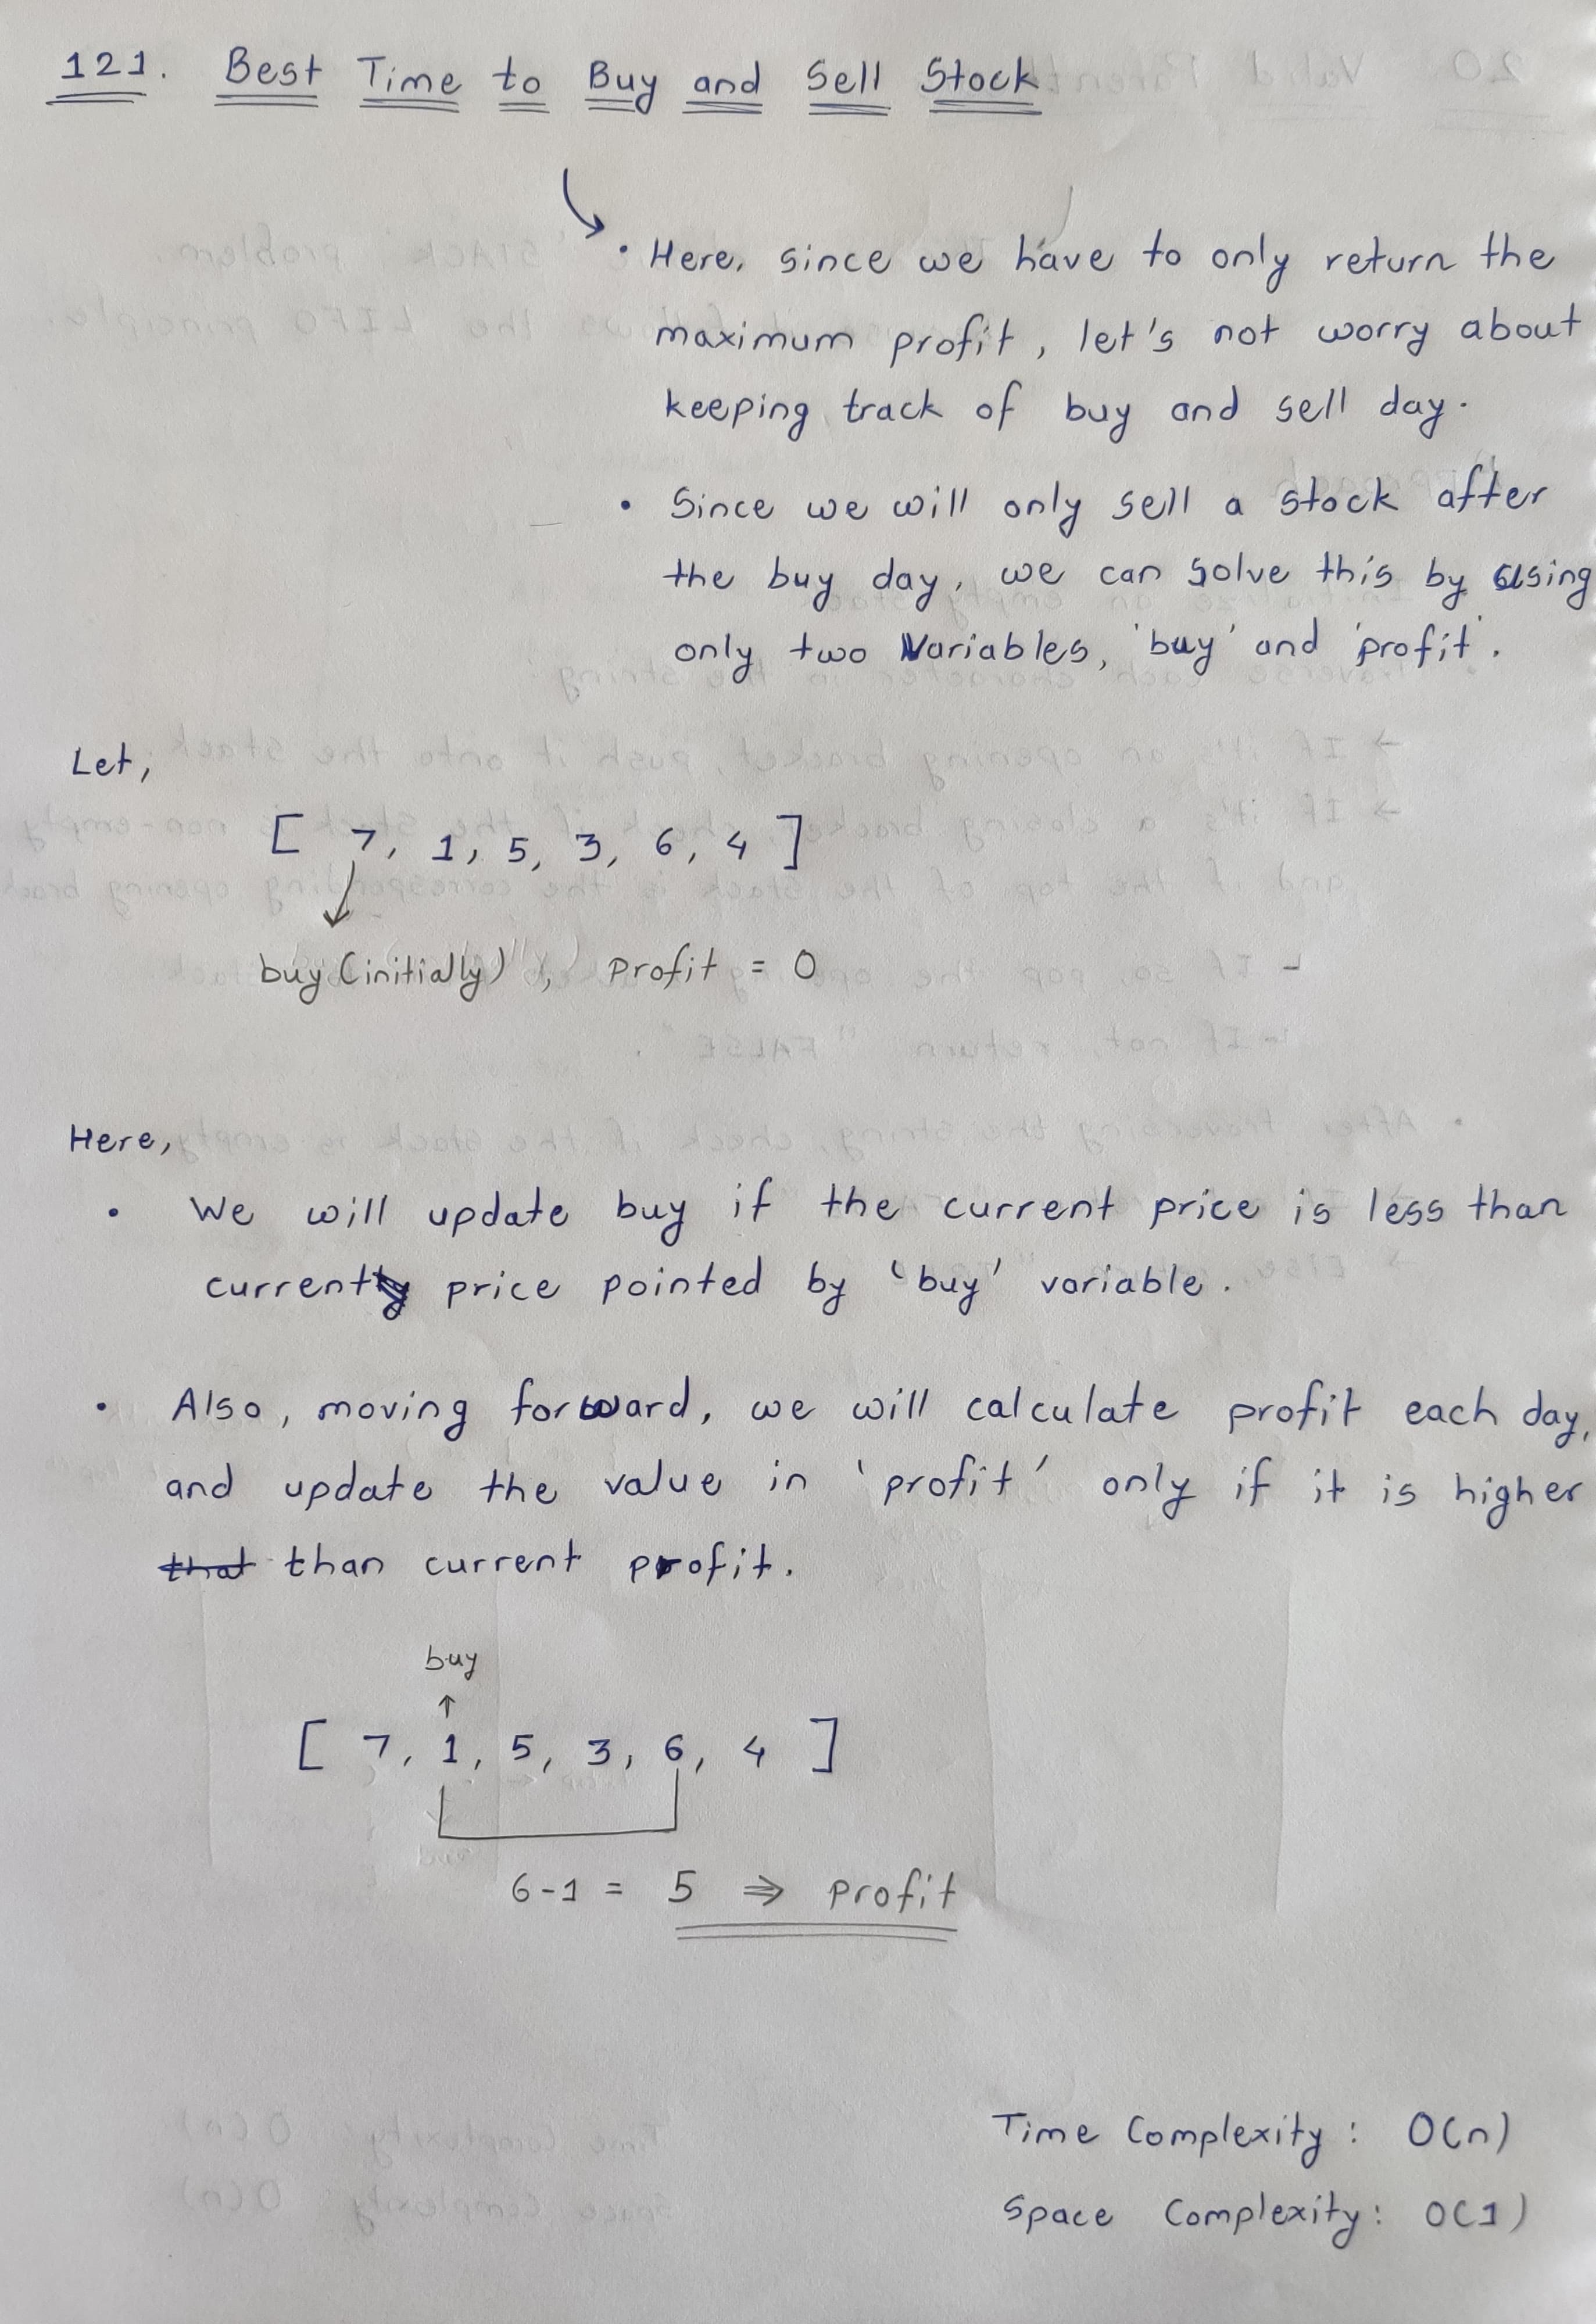 121. Best Time to Buy and Sell Stock
• Here, since we have to only return the
maximum profit, let's not worry about
keeping track of buy and sell day.
• Since we will only sell a stock after
the buy day, we can solve this by using
only two variables, 'buy' and 'profit'.
Let,
[ 7, 1, 5, 3, 6, 4 ]
buy (initially), profit = 0
Here,
• We will update buy if the current price is less than
current price pointed by 'buy' variable.
• Also, moving forward, we will calculate profit each day,
and update the value in 'profit' only if it is higher
that than current profit.
buy
[ 7, 1, 5, 3, 6, 4 ]
6-1 = 5 ⇒ profit
Time Complexity: O(n)
Space Complexity: O(1)